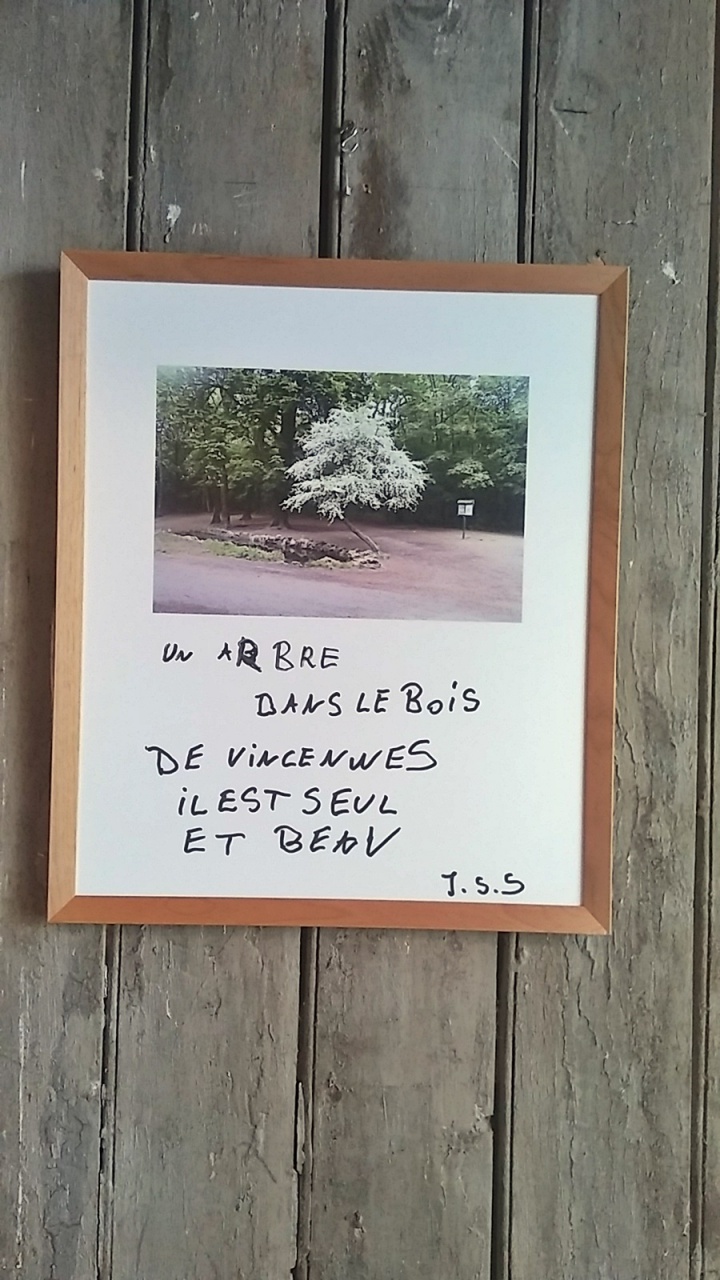 UN ARBRE
DANS LE BOiS
DE ViNCENNES
iL EST SEUL
ET BEAU
J.S.S